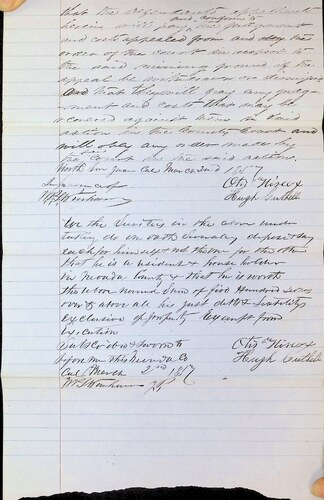 that the defendants appellants
herein will pay the judgment
and costs appealed from and obey the
order of the court in respect to
the said mining ground if the
appeal be withdrawn or dismissed
and that they will pay any judg-
ment and costs that may be
recovered against them in said
action in the County Court and
will obey any order made by
the Court in the said action.
North San Juan Cal March 2nd 1857
In presence of
Hugh Cuthill
We the Sureties in the above under
taking do on oath severally depose & say
each for himself and not the one for the other
that he is a resident & house holder
in Nevada County & that he is worth
the above named sum of five Hundred Dollars
over & above all his just debts & liabilities
exclusive of property Exempt from
Execution
Subscribed & sworn to
before me this Nevada Co
Cal March 2nd 1857
Hugh Cuthill